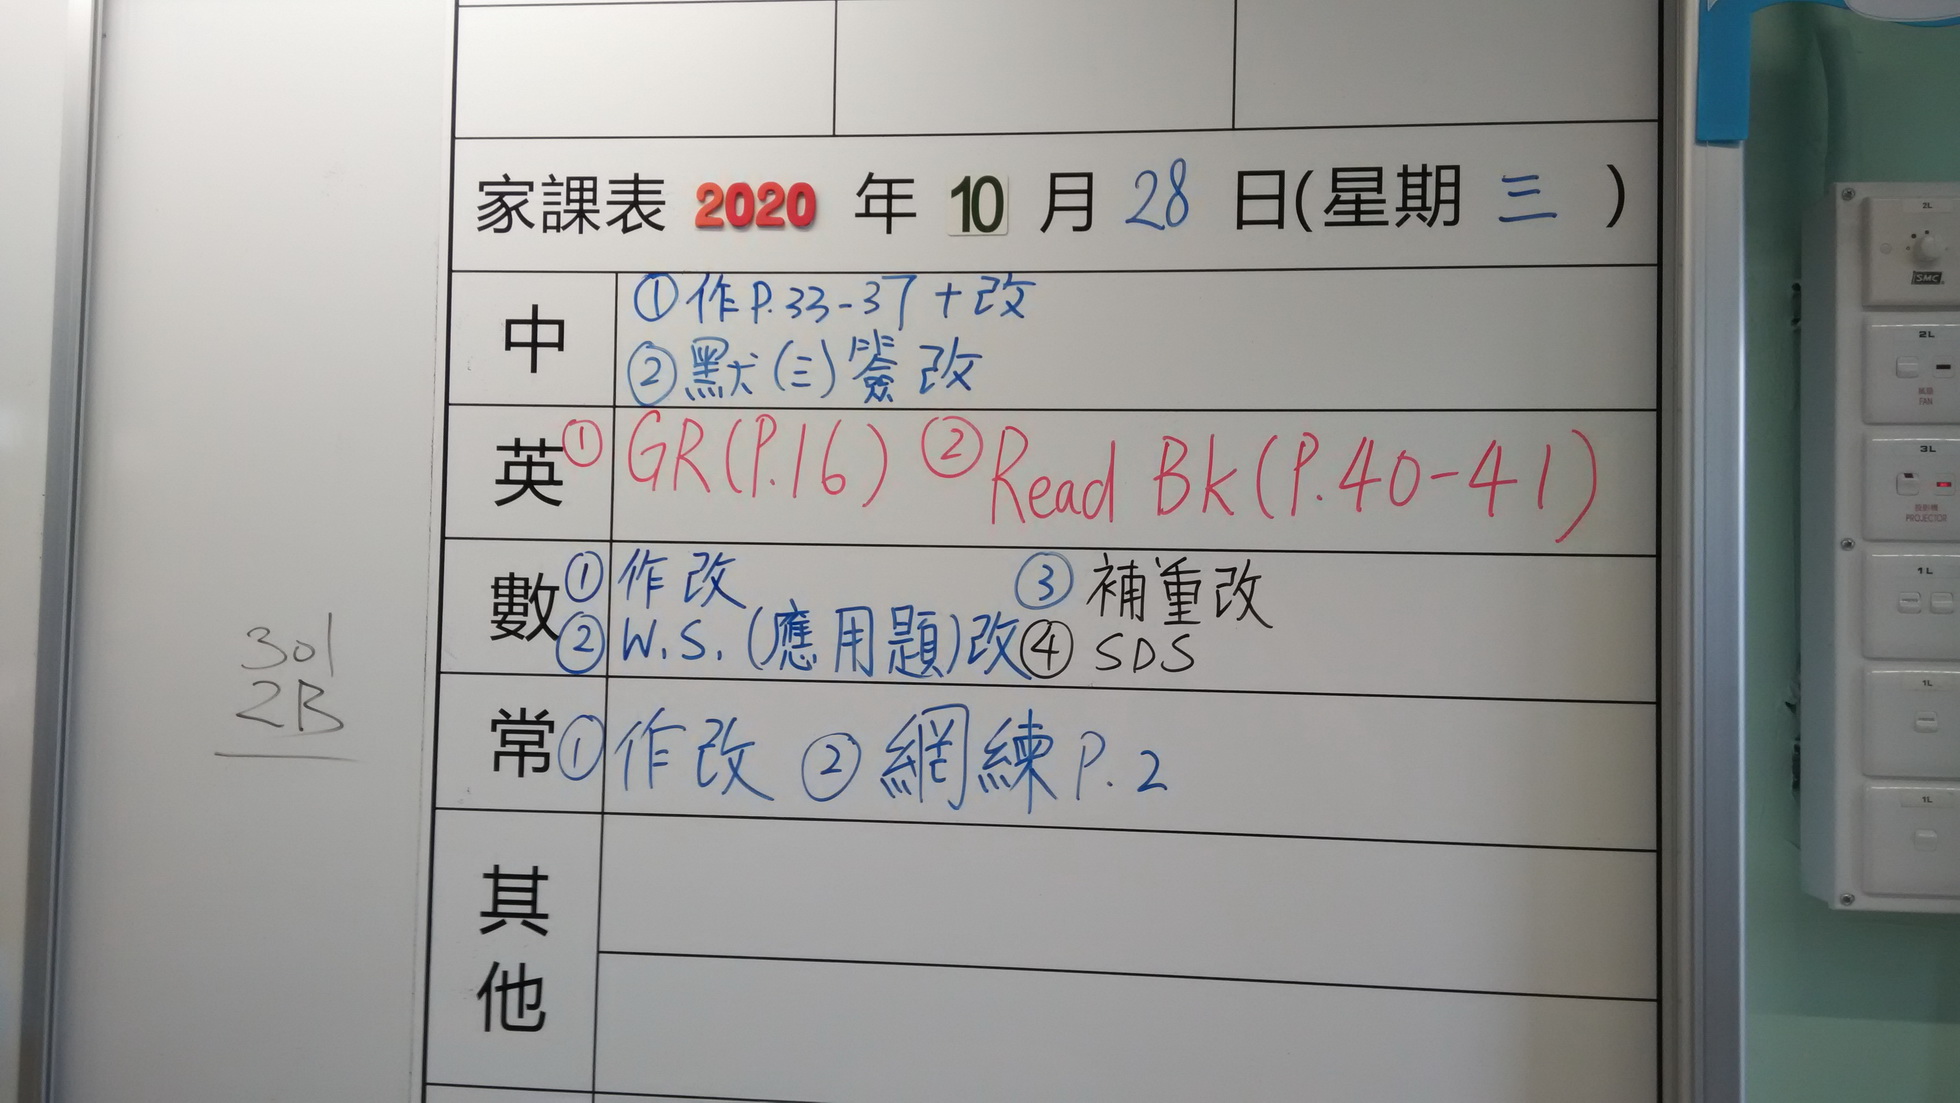 家課表 2020 年 10 月 28 日(星期 三 )
中
①作P.33-37+改
②默(三)簽改
英 ①GR(P.16) ②Read Bk(P.40-41)
數 ①作改 ③補重改
②W.S.(應用題)改 ④SDS
常 ①作改 ②網練P.2
其他
301
2B
2L
SMC
2L
風扇
FAN
3L
投影機
PROJECTOR
1L
1L
1L